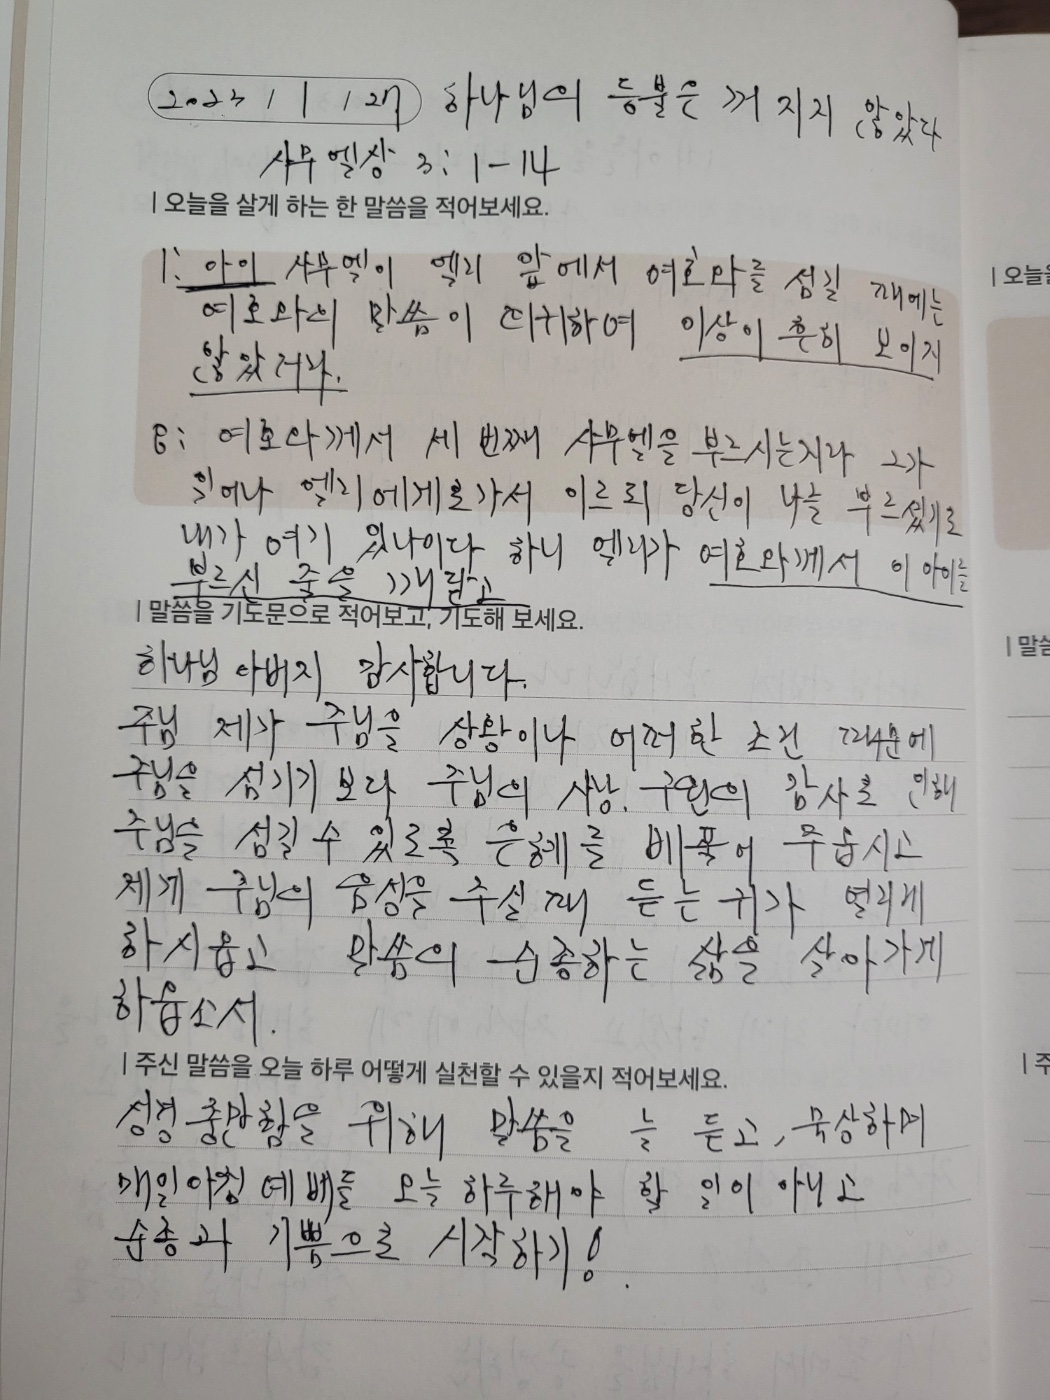 2023 / 1 / 27 하나님의 등불은 꺼지지 않았다
사무엘상 3:1-14
| 오늘을 살게 하는 한 말씀을 적어보세요.
1: 아이 사무엘이 엘리 앞에서 여호와를 섬길 때에는
여호와의 말씀이 희귀하여 이상이 흔히 보이지
않았더라.
8: 여호와께서 세 번째 사무엘을 부르시는지라 그가
일어나 엘리에게로 가서 이르되 당신이 나를 부르셨기로
내가 여기 있나이다 하니 엘리가 여호와께서 이 아이를
부르신 줄을 깨닫고
| 말씀을 기도문으로 적어보고, 기도해 보세요.
하나님 아버지 감사합니다.
주님 제가 주님을 상황이나 어떠한 조건 때문에
주님을 섬기기 보다 주님의 사랑. 구원의 감사로 인해
주님을 섬길 수 있도록 은혜를 베풀어 주옵시고
제게 주님의 음성을 주실 때 듣는 귀가 열리게
하시옵고 말씀의 순종하는 삶을 살아가게
하옵소서.
| 주신 말씀을 오늘 하루 어떻게 실천할 수 있을지 적어보세요.
성경 충만함을 위해 말씀을 늘 듣고, 묵상하며
매일아침 예배를 오늘 하루 해야 할 일이 아니고
순종과 기쁨으로 시작하기!
| 오늘을
| 말씀
| 주